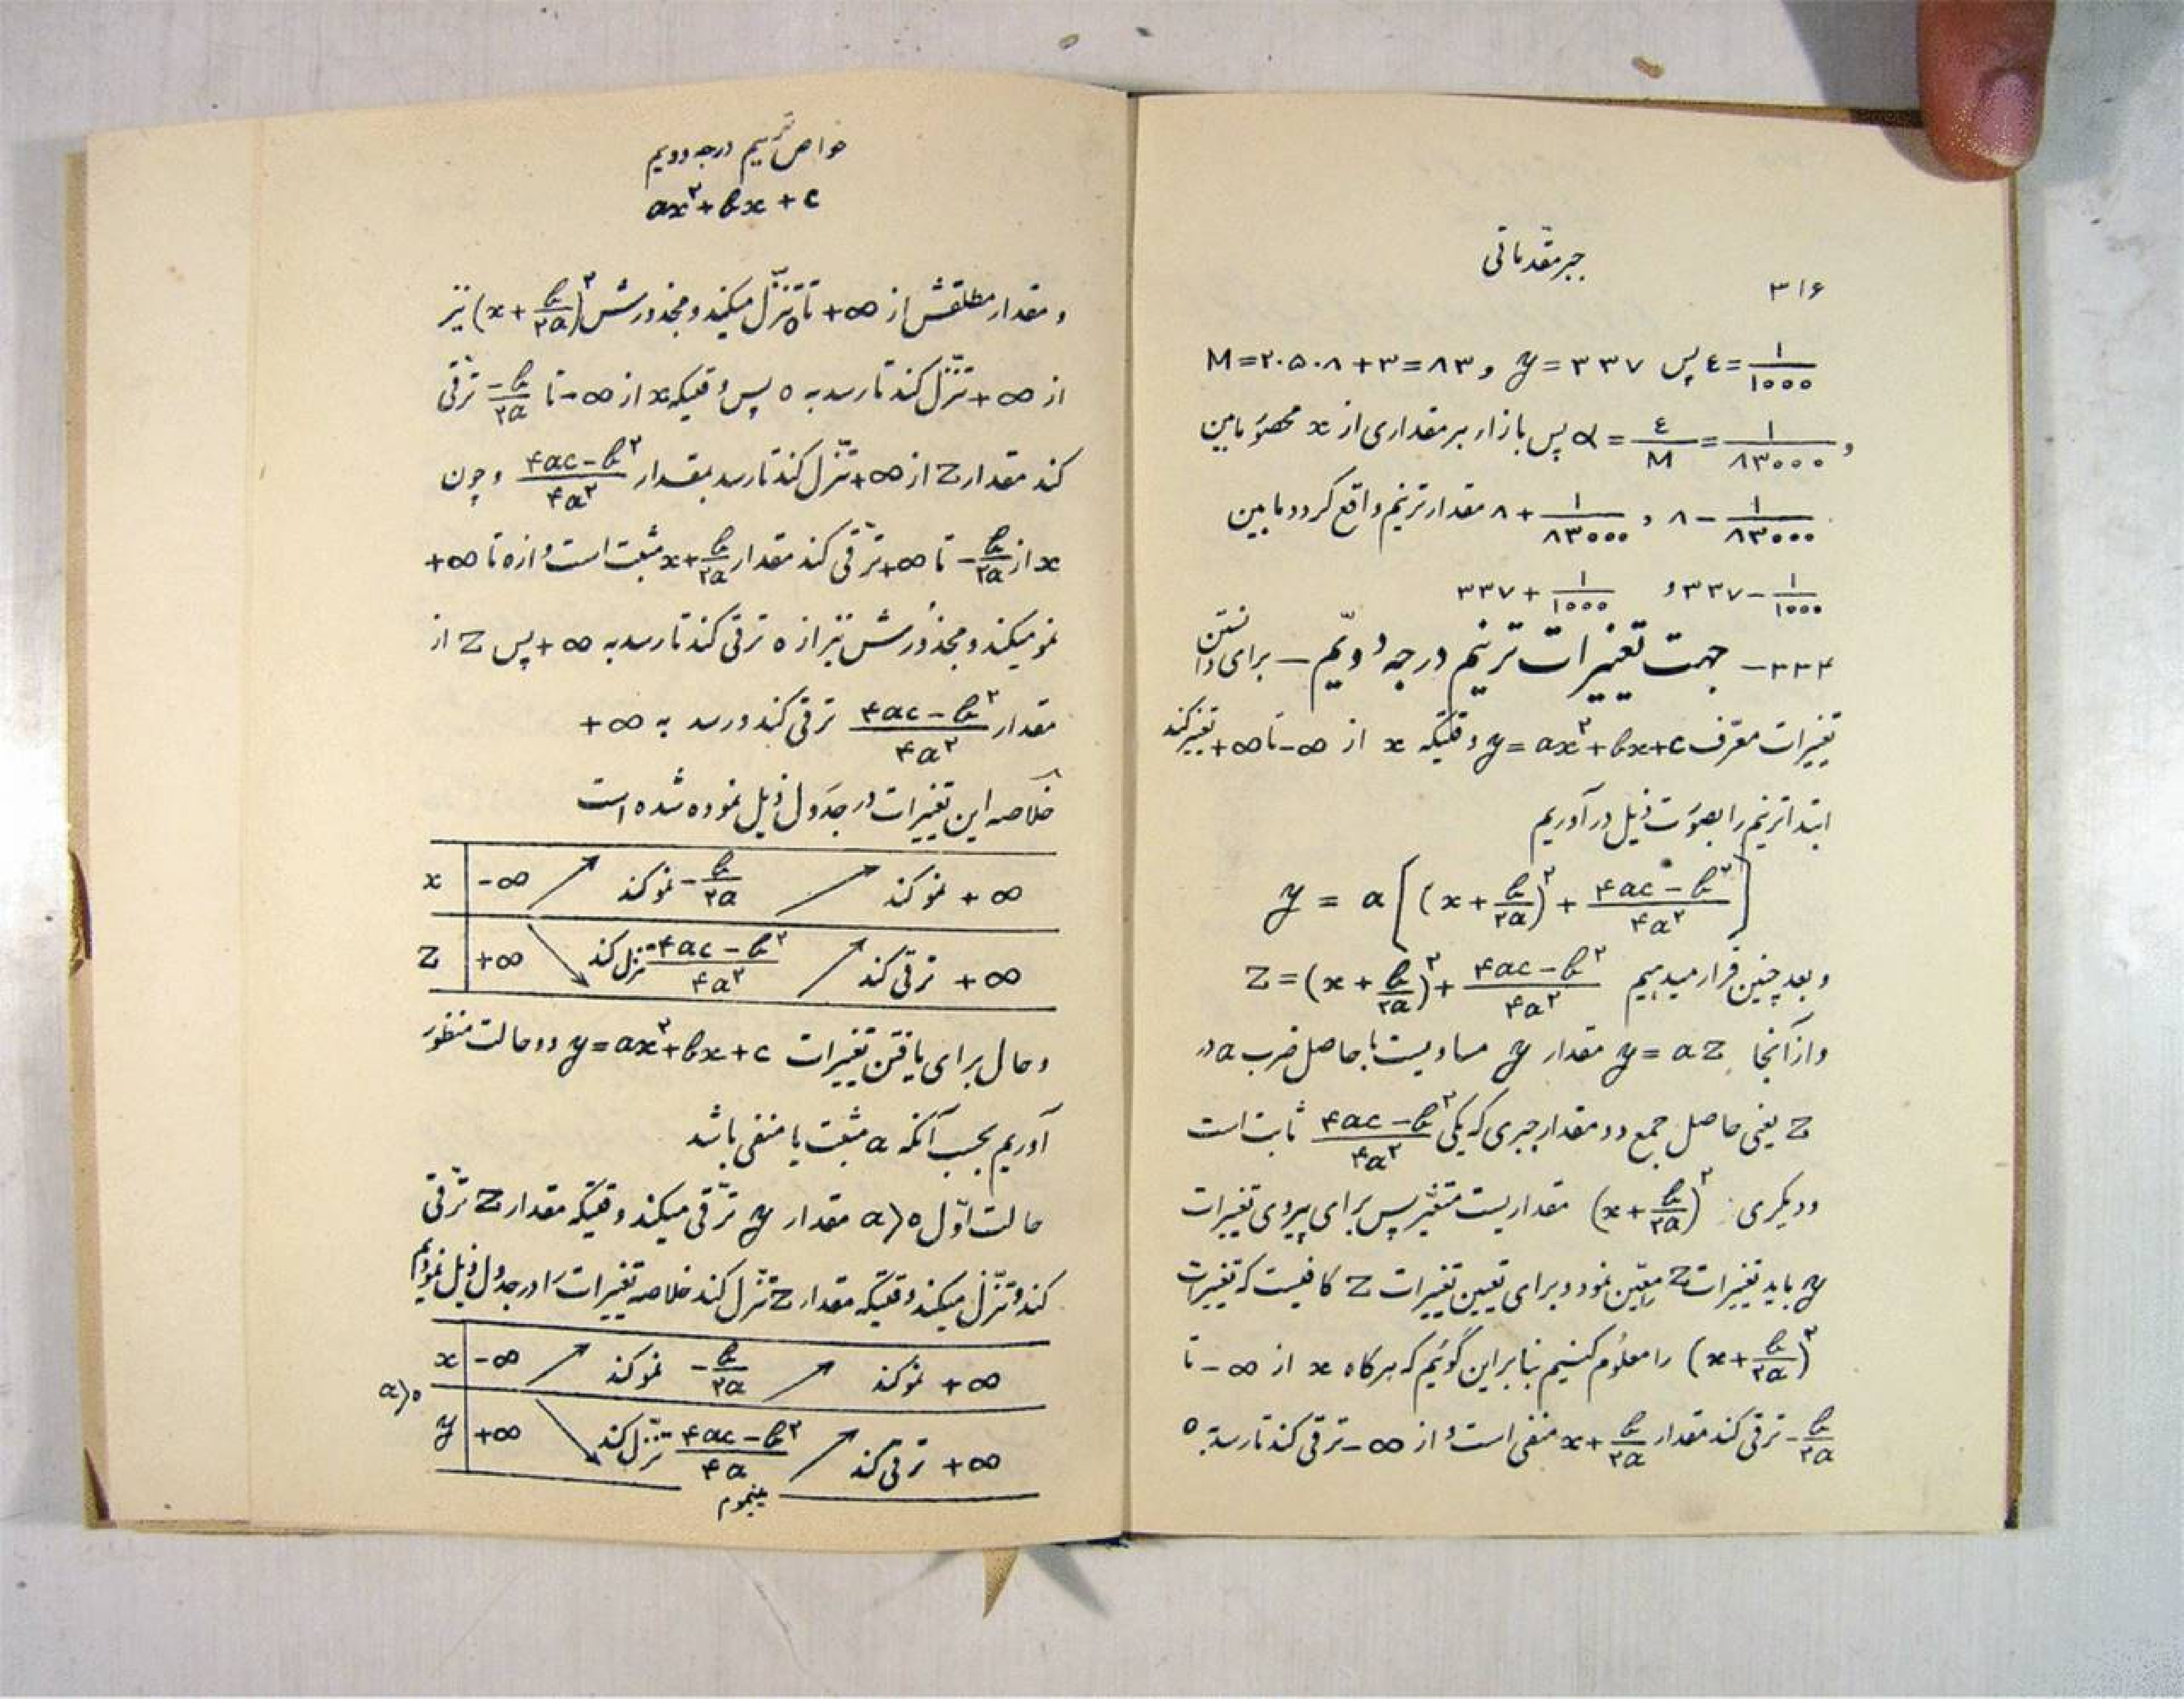 جبر مقدّماتی
۳۱۶
ε = ۱/۱۰۰۰ پس y = ۳۳۷ و M = ۲·۵·۸ + ۳ = ۸۳
و α = ε/M = ۱/۸۳۰۰۰ پس بازاء هر مقداری از x محصور مابین
۸ − ۱/۸۳۰۰۰ و ۸ + ۱/۸۳۰۰۰ مقدار ترینم واقع گردد مابین
۳۳۷ − ۱/۱۰۰۰ و ۳۳۷ + ۱/۱۰۰۰
۳۳۴ — جهت تغییرات ترینم درجه دویّم — برای دانستن
تغییرات معرف y = ax² + bx + c وقتیکه x از −∞ تا +∞ تغییر کند
ابتدا ترینم را بصورت ذیل در آوریم
y = a[(x + b/۲a)² + (۴ac − b²)/۴a²]
و بعد چنین قرار میدهیم Z = (x + b/۲a)² + (۴ac − b²)/۴a²
و از آنجا y = aZ مقدار y مساویست با حاصل ضرب a در
Z یعنی حاصل جمع دو مقدار جبری که یکی (۴ac − b²)/۴a² ثابت است
و دیگری (x + b/۲a)² مقداریست متغیّر پس برای پیروی تغییرات
y باید تغییرات Z را معیّن نمود و برای تعیین تغییرات Z کافیست که تغییرات
(x + b/۲a)² را معلوم کنیم بنابراین گوئیم که هرگاه x از −∞ تا
−b/۲a ترقی کند مقدار x + b/۲a منفی است و از −∞ ترقی کند تا رسد به ۰
خواص ترینم درجه دویم
ax² + bx + c
و مقدار مطلقش از +∞ تا ۰ تنزّل میکند و مجذورش (x + b/۲a)² نیز
از +∞ تنزّل کند تا رسد به ۰ پس وقتیکه x از −∞ تا −b/۲a ترقّی
کند مقدار Z از +∞ تنزّل کند تا رسد بمقدار (۴ac − b²)/۴a² و چون
x از −b/۲a تا +∞ ترقّی کند مقدار x + b/۲a مثبت است و از ۰ تا +∞
نمو میکند و مجذورش نیز از ۰ ترقی کند تا رسد به +∞ پس Z از
مقدار (۴ac − b²)/۴a² ترقی کند و رسد به +∞
خلاصه این تغییرات در جدول ذیل نموده شده است
x | −∞ ↗ نمو کند −b/۲a ↗ نمو کند +∞
Z | +∞ ↘ تنزل کند (۴ac − b²)/۴a² ↗ ترقی کند +∞
و حال برای یافتن تغییرات y = ax² + bx + c دو حالت منظور
آوریم بحسب آنکه a مثبت یا منفی باشد
حالت اوّل a > ۰ مقدار y ترقّی میکند وقتیکه مقدار Z ترقّی
کند و تنزّل میکند وقتیکه مقدار Z تنزّل کند خلاصه تغییرات را در جدول ذیل نمودیم
x | −∞ ↗ نمو کند −b/۲a ↗ نمو کند +∞
a > ۰
y | +∞ ↘ تنزّل کند (۴ac − b²)/۴a ↗ ترقی کند +∞
مینیموم